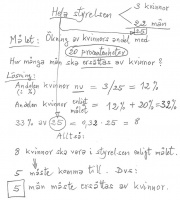 Hela styrelsen
3 kvinnor
22 män
25
Målet: Ökning av kvinnors andel med
20 procentenheter
Hur många män ska ersättas av kvinnor?
Lösning:
Andelen kvinnor nu = 3/25 = 12%
(i %)
Andelen kvinnor enligt målet = 12% + 20% = 32%
33% av 25 = 0,32·25 = 8
Alltså:
8 kvinnor ska vara i styrelsen enligt målet.
5 måste komma till. Dvs:
5 män måste ersättas av kvinnor.